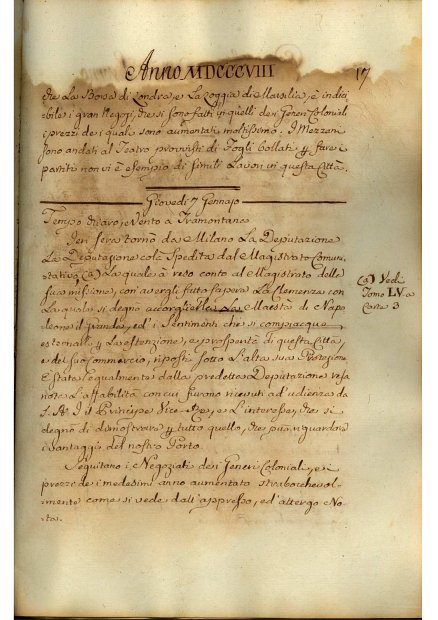 Anno MDCCCVIII
17
che La Borsa di Londra, e La Loggia di Marsilia, è indici
ibile i gran Negozj, che si sono fatti in quelli de i Generi Coloniali
i prezzi de i quali sono aumentati moltissimo. I Mezzani
sono andati al Teatro provvisti di Fogli bollati, per fare i
partiti non vi è esempio di simili Lavori in questa Città.
Giovedì 7 Gennajo
Tempo chiaro, e Vento a Tramontana
Jeri sera tornò da Milano La Deputazione
La Deputazione colà Spedita dal Magistrato Comuni
tativo, (a) La quale à reso conto al Magistrato della
sua missione, con avergli fatto sapere La Clemenza con
La quale si degnò accoglierla La Maestà di Napo
leone il grande, ed i Sentimenti che si compiacque
esternalli per La estenzione, e prosperità di questa Città,
e del suo Commercio, riposti sotto L'alta sua Protezione
È stata egualmente dalla predetta Deputazione resa
nota L'affabilità con cui furono ricevuti ad udienza da
S. A. I. il Principe Vice-Re, e L'interesse, che si
degnò di dimostrare per tutto quello, che può riguardare
i vantaggi del nostro Porto.
Seguitano i Negoziati de i Generi Coloniali, e i
prezzi de i medesimi anno aumentato straboche vol
mente come si vede dall'appresso, ed'altergo No
ta.
(a) Vedi
Tomo LV a
Carte 3